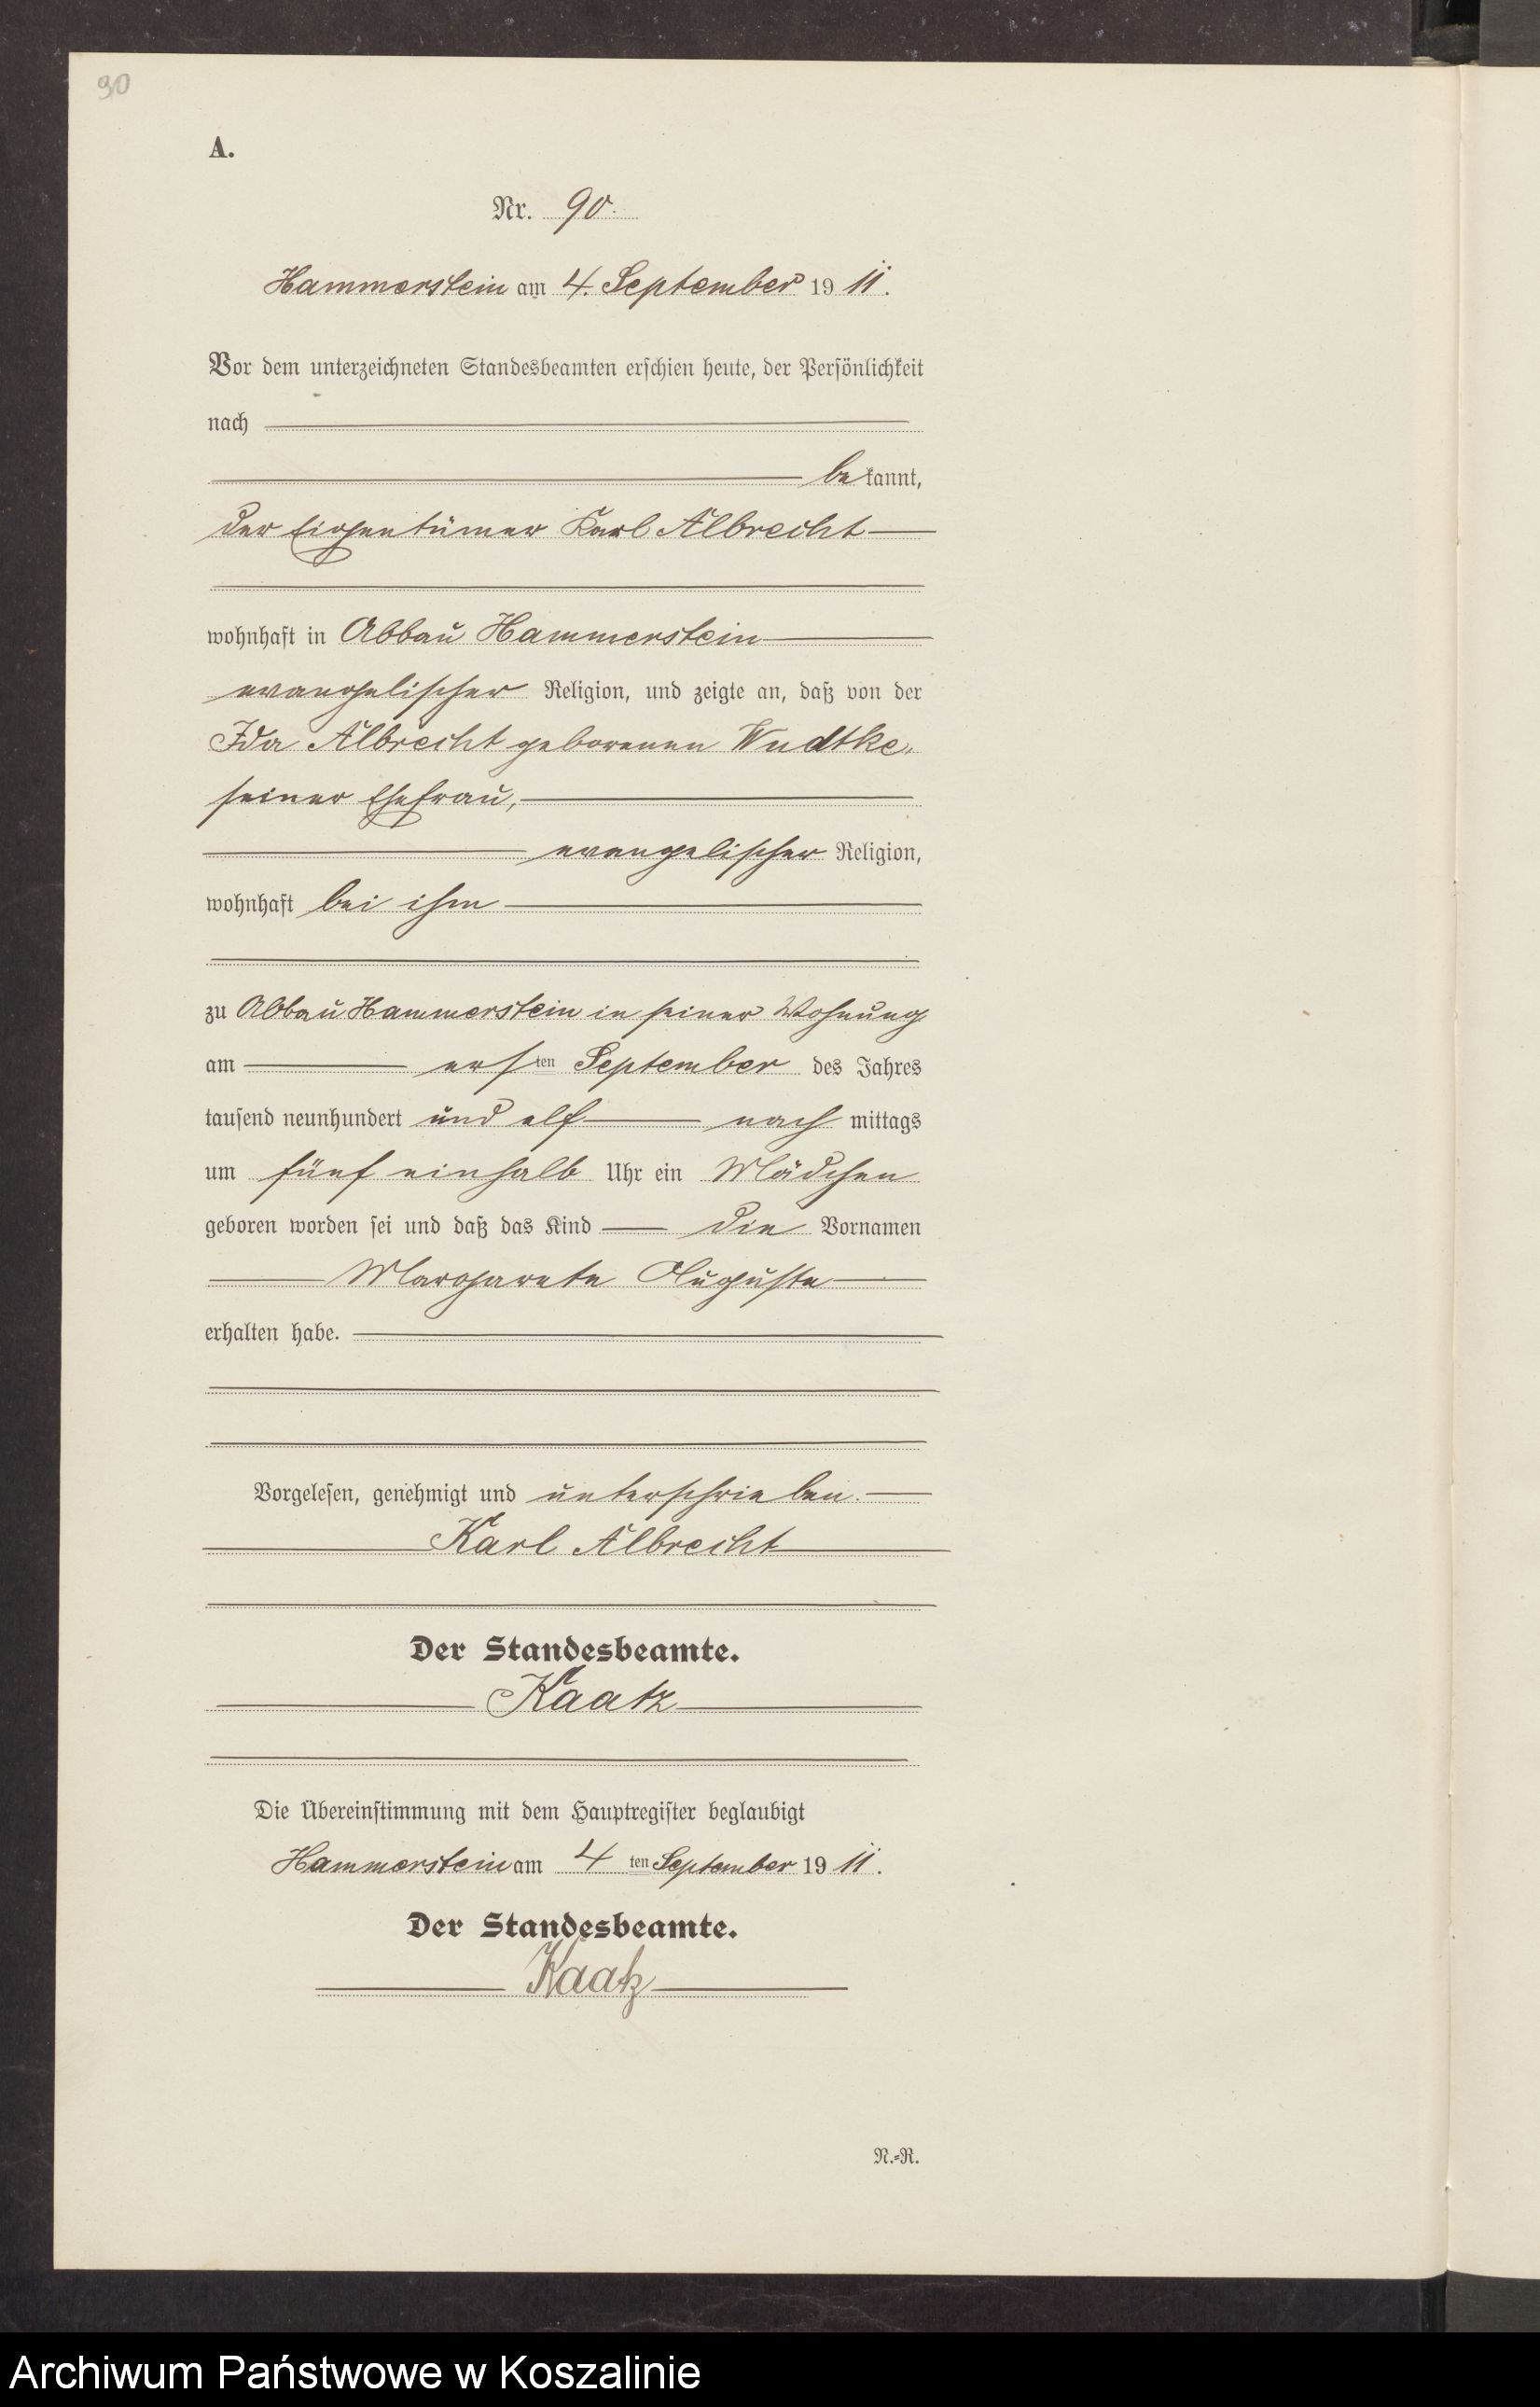 90
A.
Nr. 90.
Hammerstein am 4. September 1911.
Vor dem unterzeichneten Standesbeamten erschien heute, der Persönlichkeit
nach
bekannt,
der Eigentümer Karl Albrecht
wohnhaft in Abbau Hammerstein
evangelischer Religion, und zeigte an, daß von der
Ida Albrecht geborenen Wudtke,
seiner Ehefrau,
evangelischer Religion,
wohnhaft bei ihm
zu Abbau Hammerstein in seiner Wohnung
am ersten September des Jahres
tausend neunhundert und elf nachmittags
um fünf einhalb Uhr ein Mädchen
geboren worden sei und daß das Kind die Vornamen
Margarete Auguste
erhalten habe.
Vorgelesen, genehmigt und unterschrieben.
Karl Albrecht
Der Standesbeamte.
Kaatz
Die Übereinstimmung mit dem Hauptregister beglaubigt
Hammerstein am 4ten September 1911.
Der Standesbeamte.
Kaatz
N.=R.
Archiwum Państwowe w Koszalinie